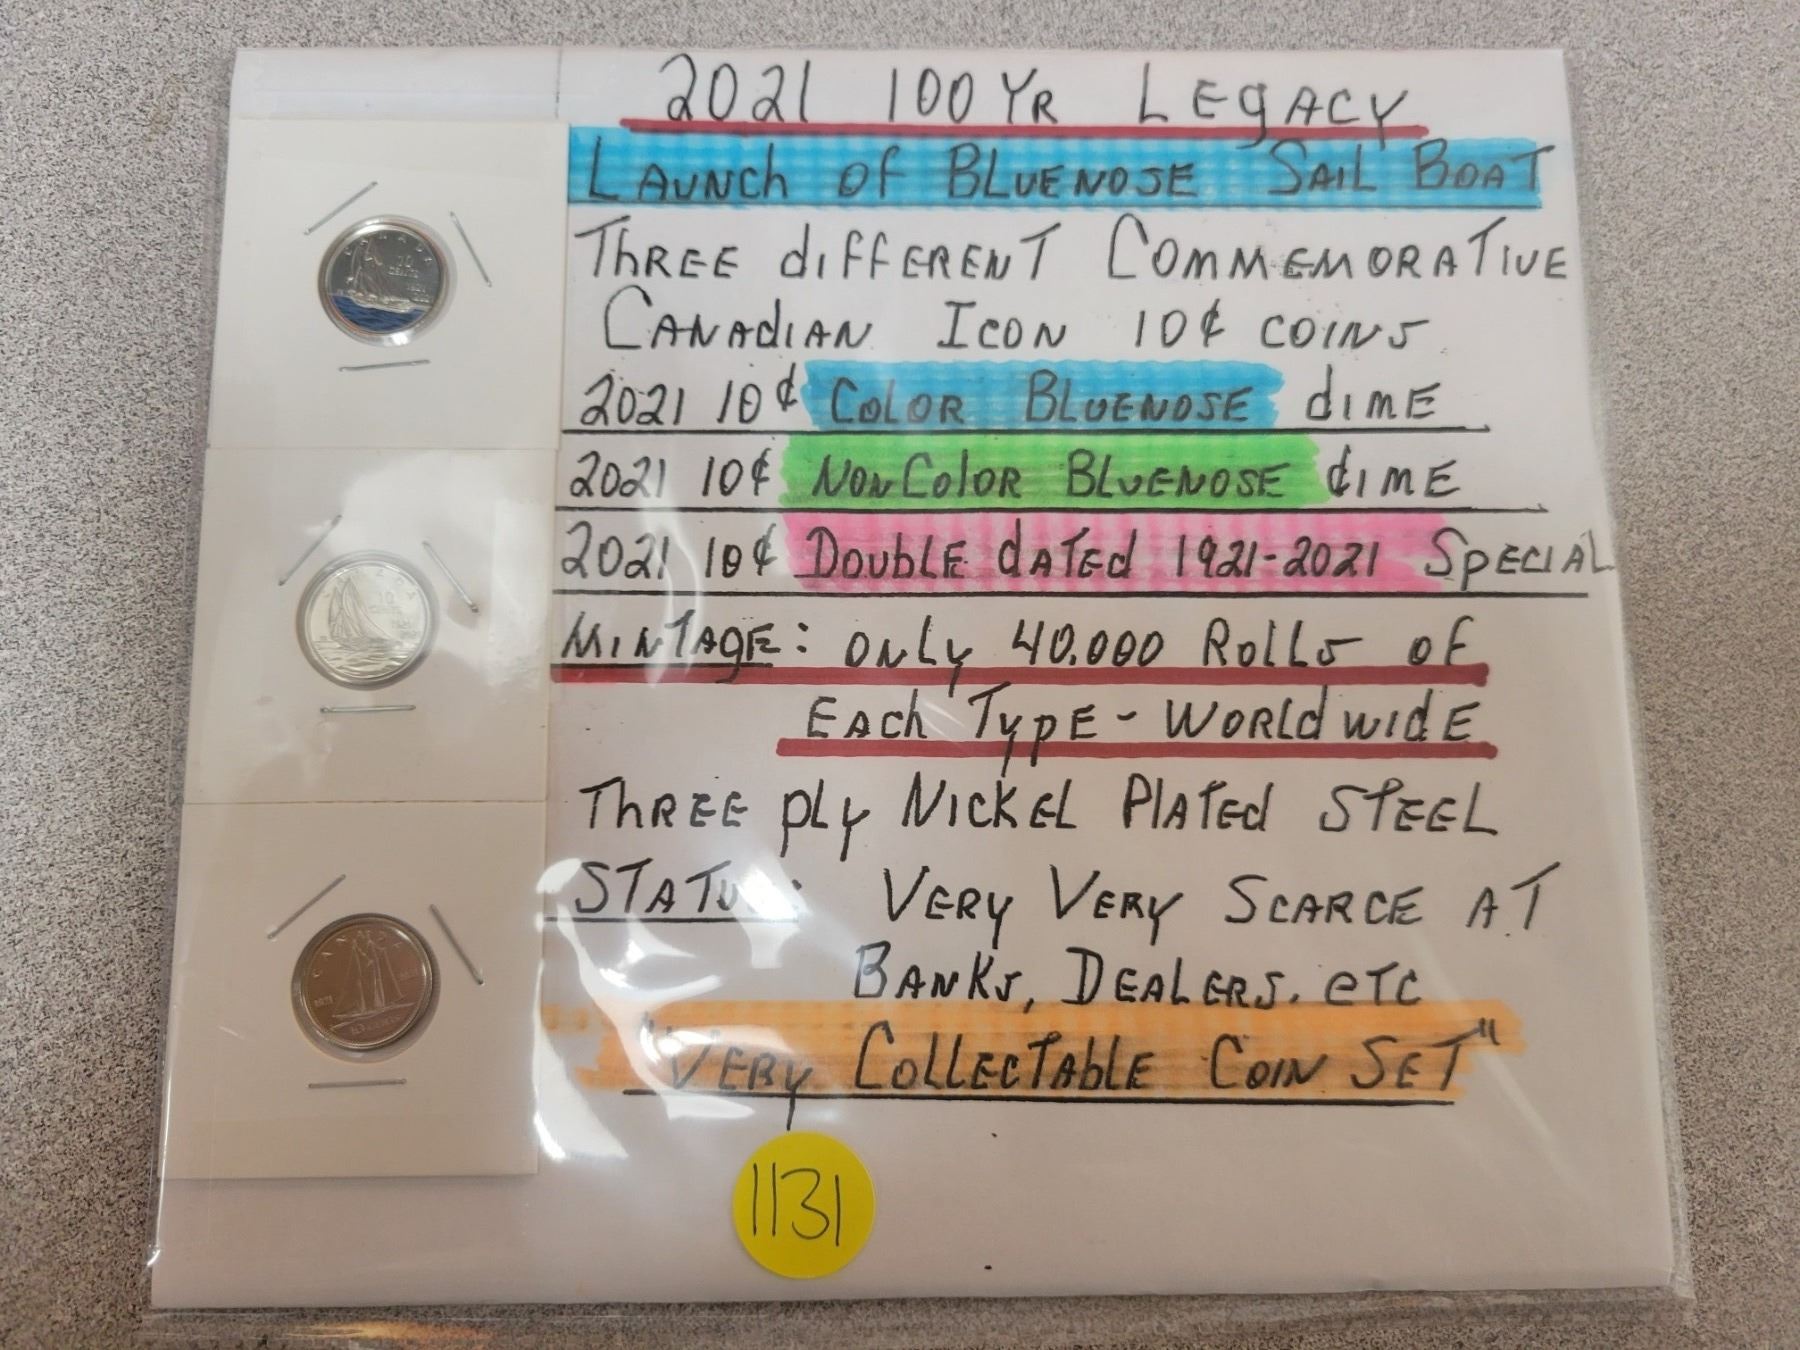 2021 100 YR LEGACY
LAUNCH OF BLUENOSE SAIL BOAT
THREE different COMMEMORATIVE
CANADIAN ICON 10¢ COINS
2021 10¢ COLOR BLUENOSE dIME
2021 10¢ NON COLOR BLUENOSE dIME
2021 10¢ DOUBLE dATEd 1921-2021 SPECIAL
MINTAGE: ONLY 40,000 ROLLS OF
EACH TYPE - WORLDWIDE
THREE PLY NICKEL PLATED STEEL
STATUS: VERY VERY SCARCE AT
BANKS, DEALERS, ETC
"VERY COLLECTABLE COIN SET"
1131
CANADA
10
CENTS
10
CENTS
CANADA
10 CENTS